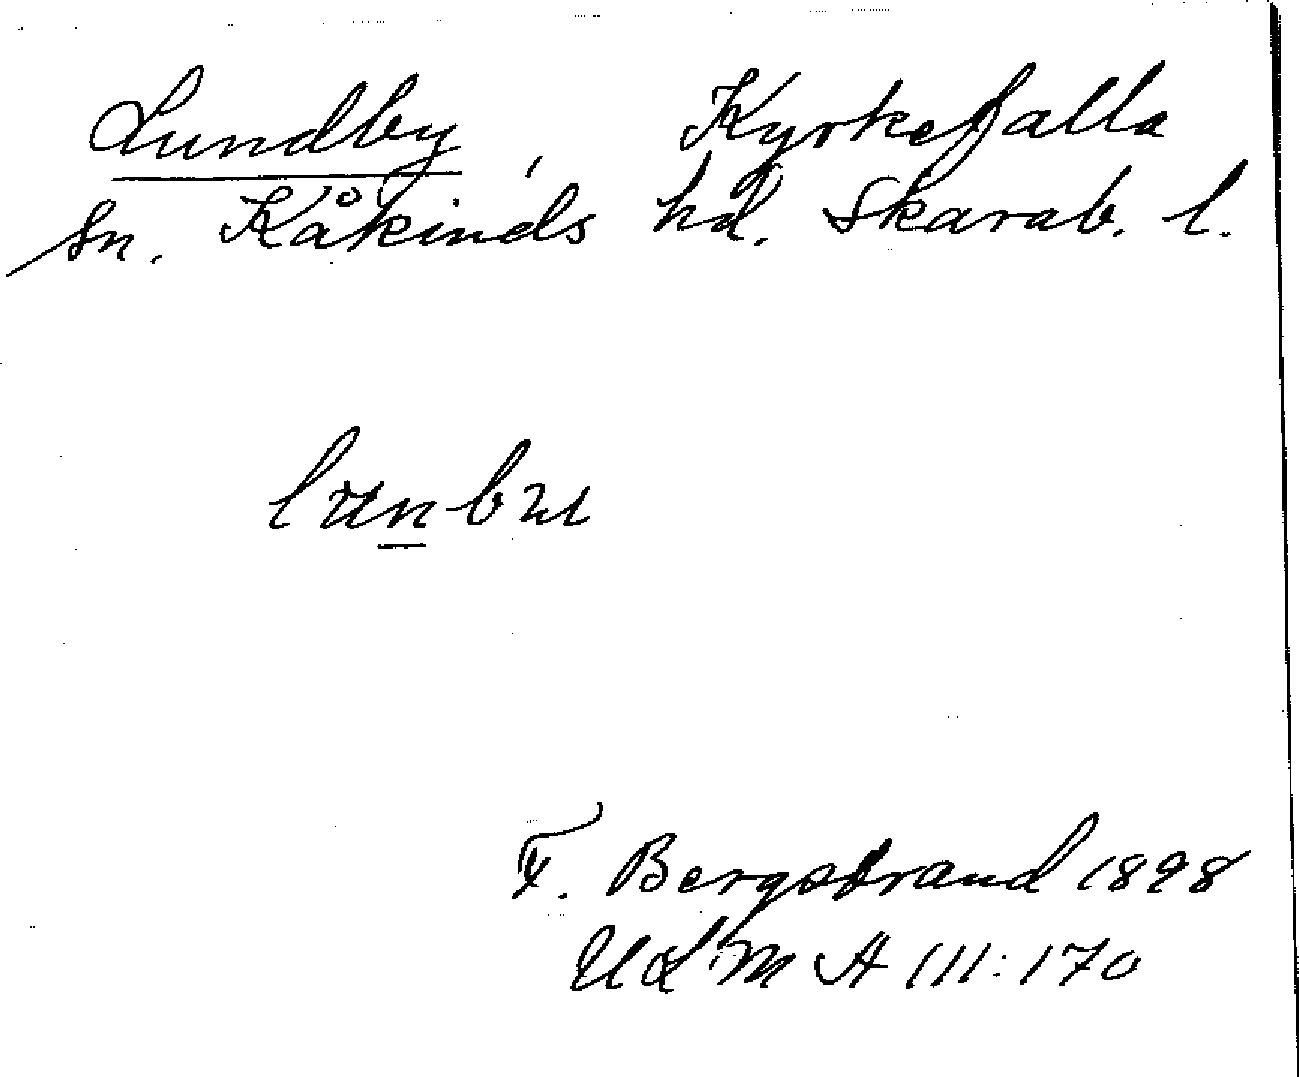 Lundby, Kyrkefalla
sn. Kåkinds hd. Skarab. l.
F. Bergstrand 1898
ULMA 111:170